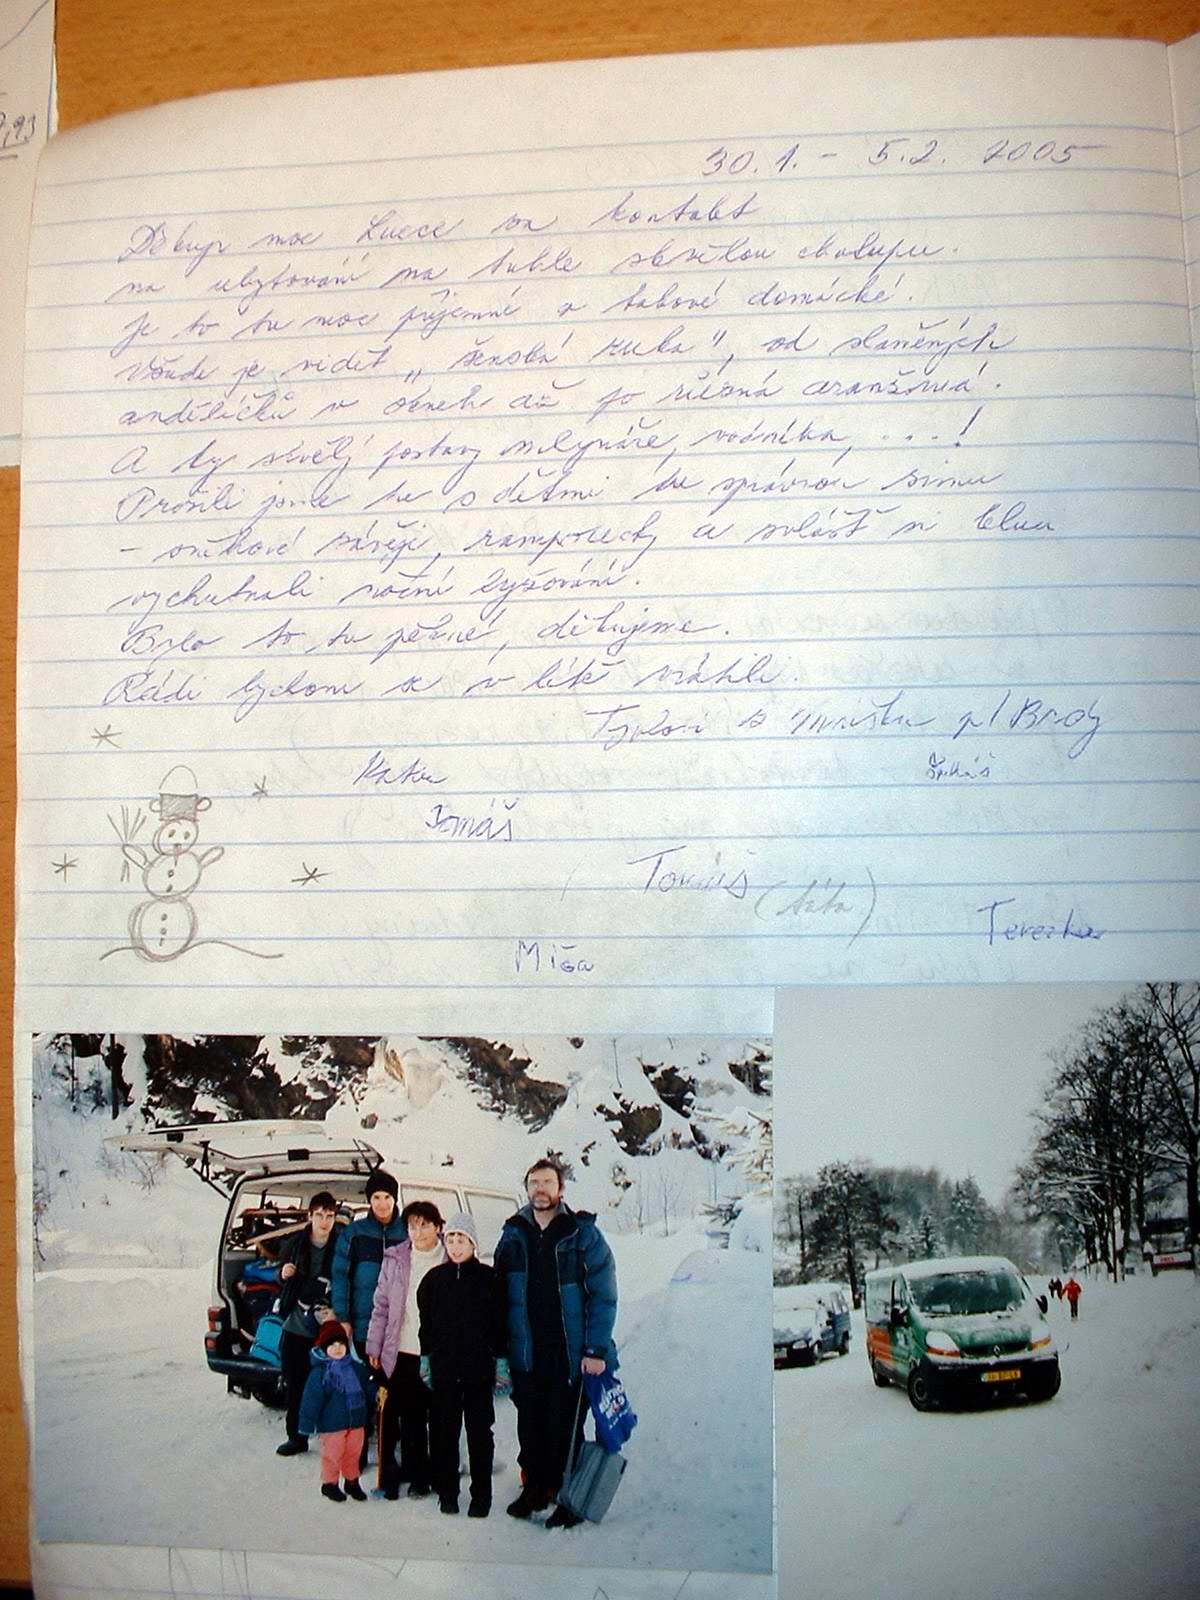 30.1. - 5.2. 2005
Děkuji moc Lucce za kontakt
na ubytování na tuhle skvělou chalupu.
Je to tu moc příjemné a takové domácké.
Všude je vidět „ženská ruka", od slaměných
andělíčků v oknech až po různá aranžmá.
A ty skvělý postavy mlynáře, vodníka, ...!
Prožili jsme tu s dětmi tu správnou zimu
- sněhové závěje, rampouchy a zvlášť si kluci
vychutnali noční lyžování.
Bylo to tu pěkné, děkujeme.
Rádi bychom se v létě vrátili.
Tylovi z Mníšku p/Brdy
Katka
Tomáš
Tomáš (táta)
Terezka
Míša